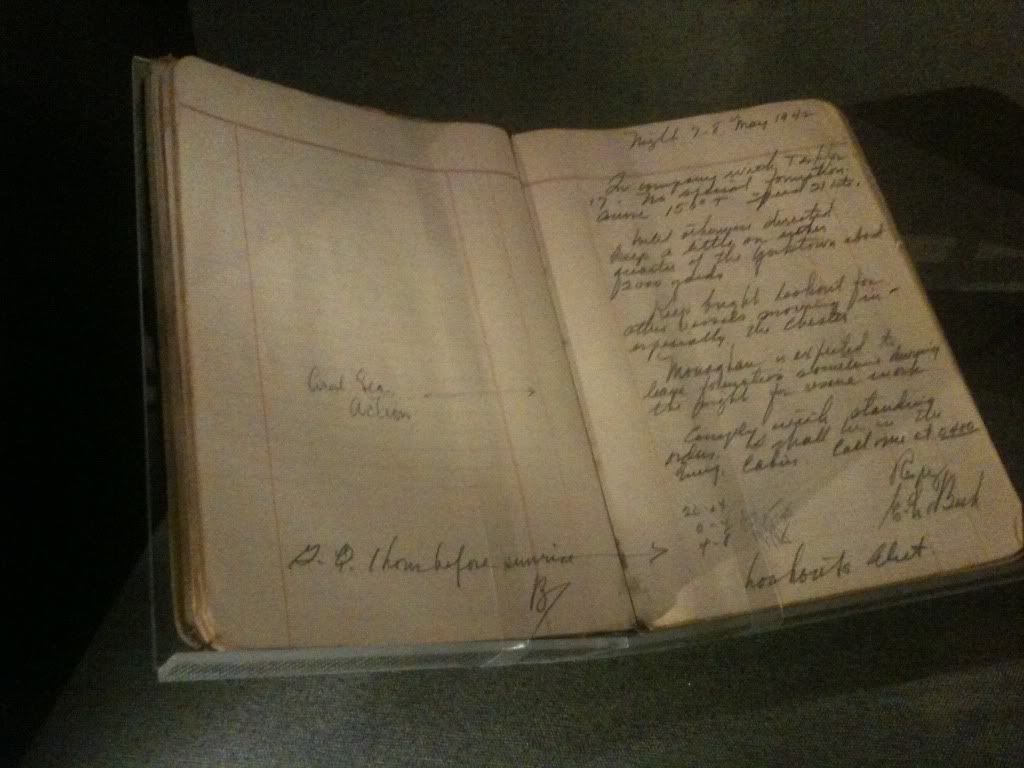 Coral Sea
Action
G. Q. 1 hour before sunrise
B
Night 7-8 May 1942
In company with Task For
17. No special formation.
Course 150° T Speed 21 kts.
United otherwise directed
keep a little on either
quarter of the Yorktown about
2000 yards
Keep bright lookout for
other vessels moving in -
especially the Chester
Monaghan is expected to
leave formation sometime during
the night for some work
Comply with standing
orders. I shall be in the
Emerg. Cabin. Call me at 0400
20-24
0-4
4-8
Lookouts Alert